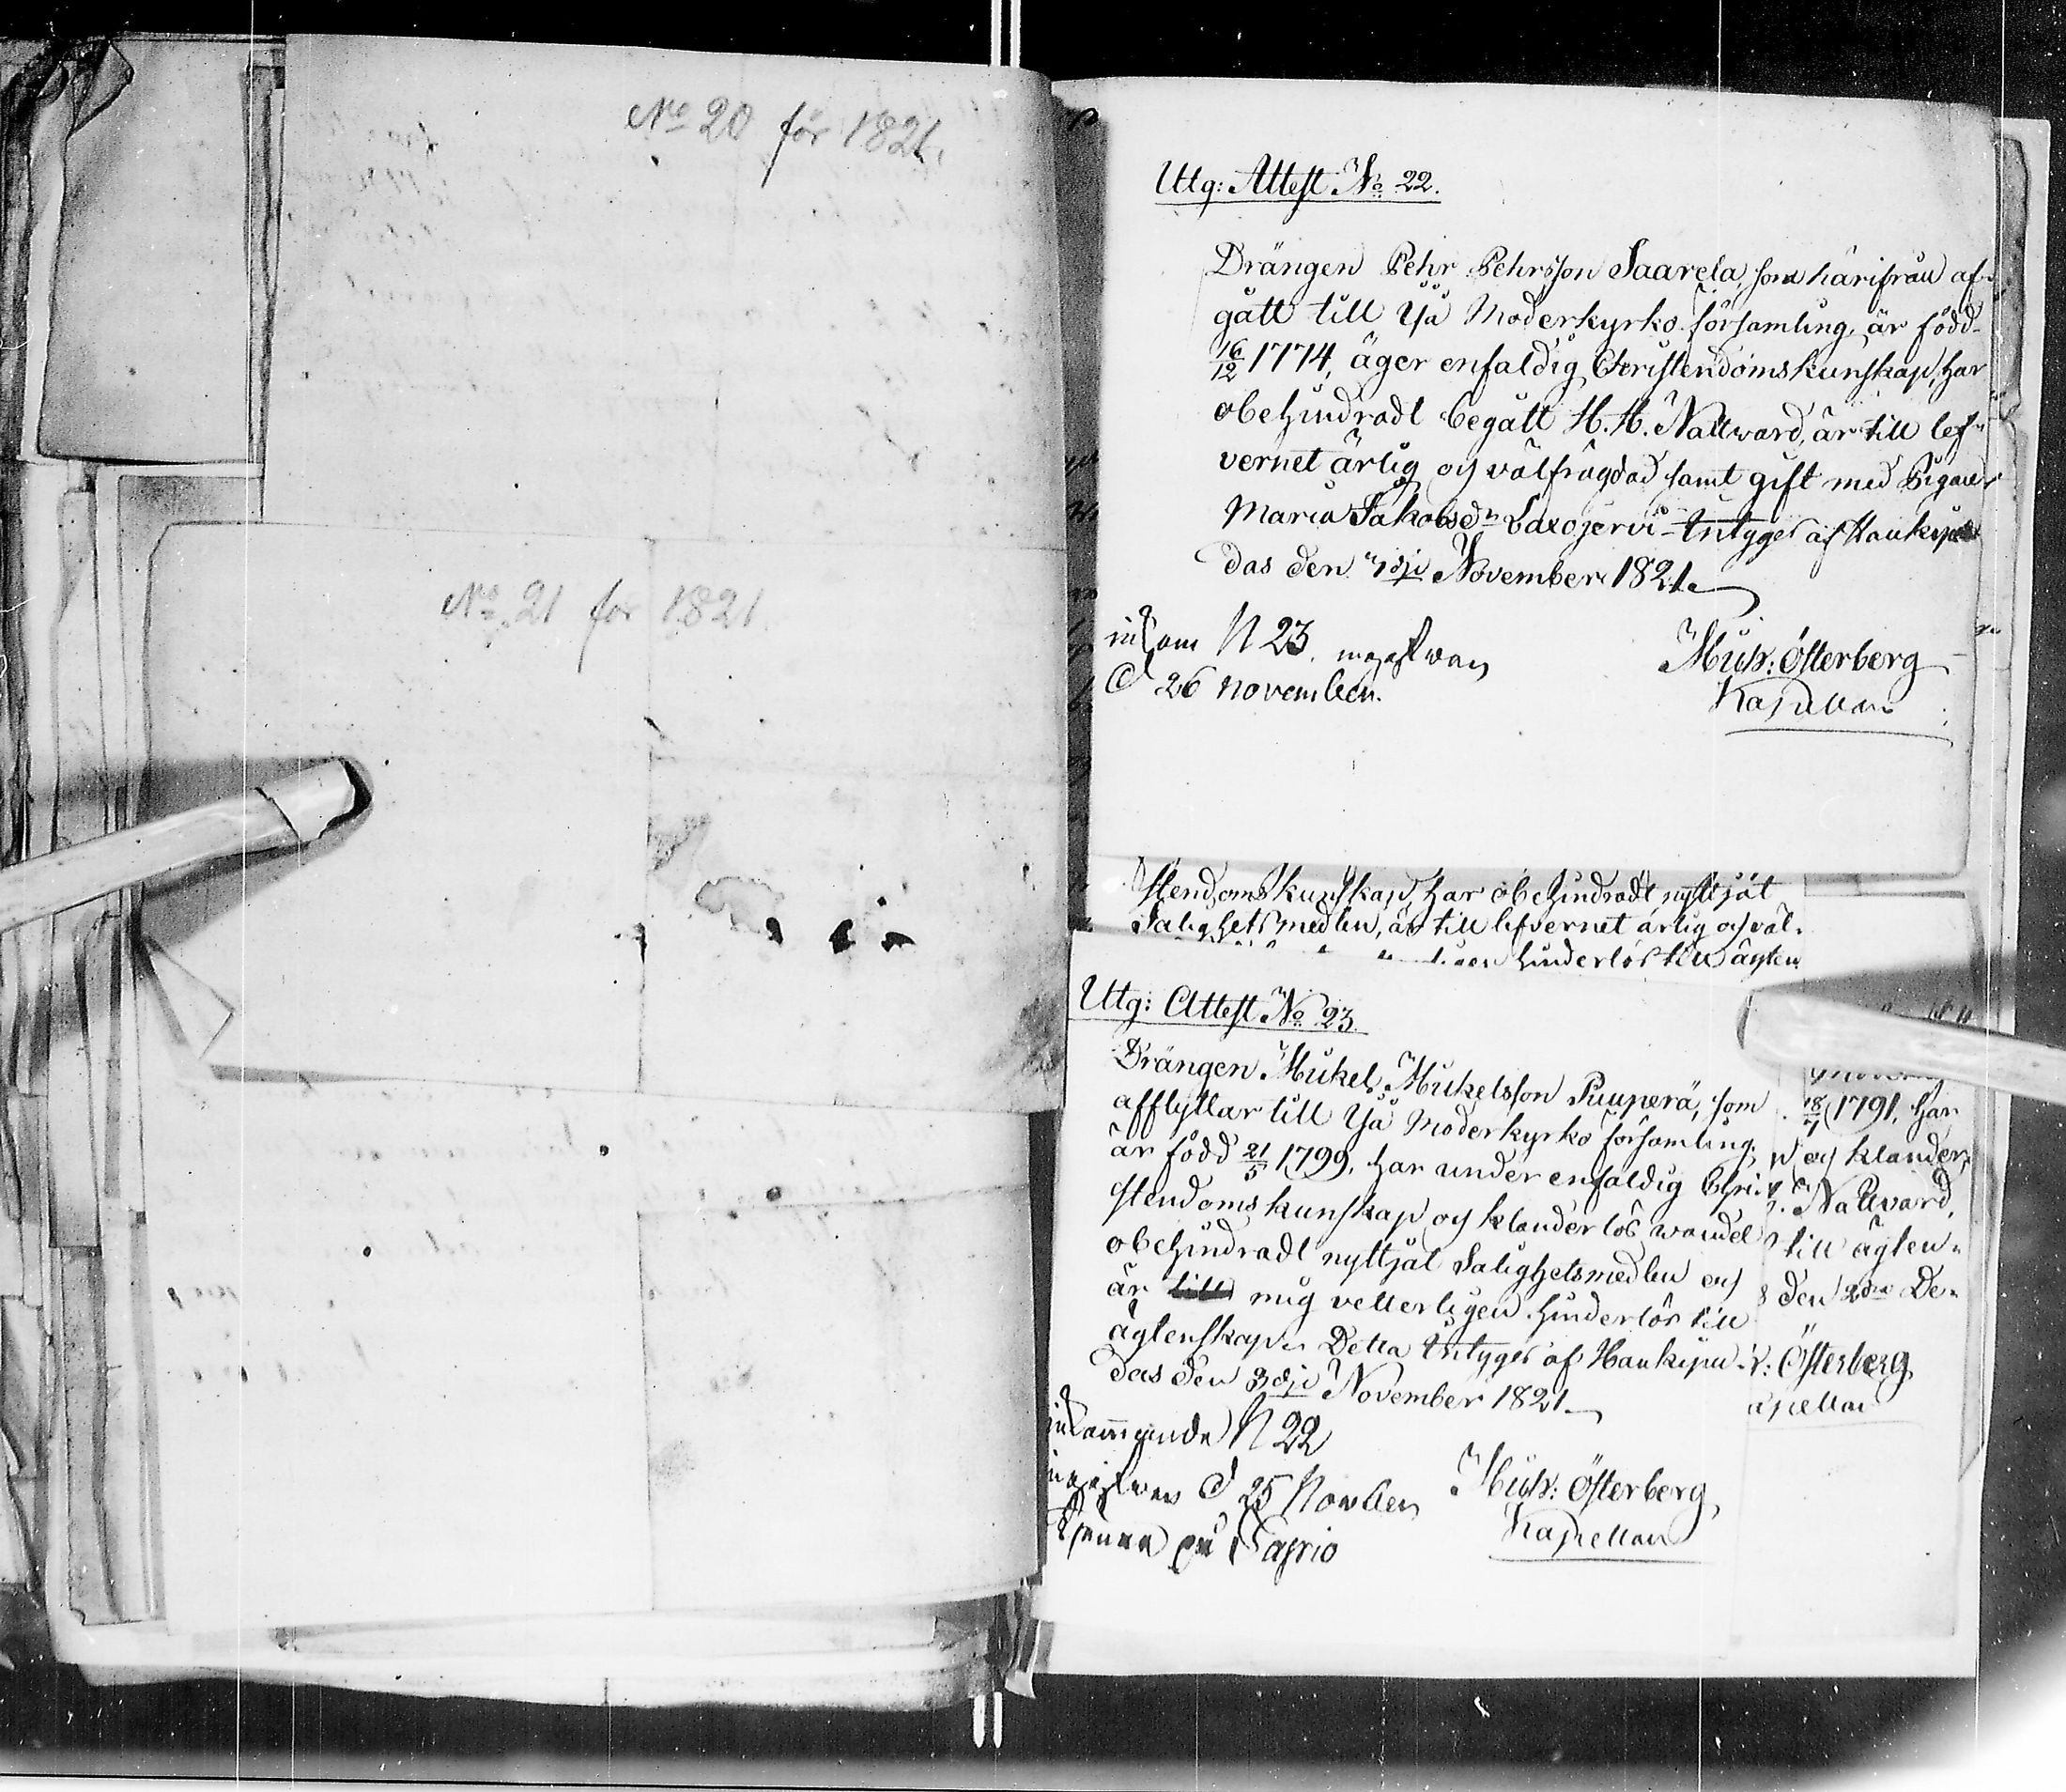 No 20 för 1821.
No 21 för 1821.
Utg: Attest No 22.
Drängen Pehr Pehrsson Saarela, som härifrån af-
gått till Ijå Moderkyrko församling, är född
16/12 1774, äger enfaldig Christendomskunskap, har
obehindradt begått H. H. Nattward, är till lef-
vernet ärlig och välfrägdad samt gift med Pigan
Maria Jakobsdr Laxojervi Intygar af Haukipu
das den November 1821.
inkom N 23 ingifwen
d 26 November.
Mich: Österberg
Kapellan
stendomskunskap, har obehindradt nyttjat
Salighetsmedlen, är till lefvernet ärlig och väl-
hinderlös till ägten
Utg: Attest No 23
Drängen Mickel Mickelsson Puuperä, som
afflyttar till Ijå Moderkyrko församling,
är född 21/5 1799, har under enfaldig Chri-
stendoms kunskap och klanderlös wandel
obehindradt nyttjat Salighetsmedlen och
är mig vetterligen hinderlös till
ägtenskap. Detta Intygar af Haukipu-
das den 3dje November 1821.
inkommende N 22
ingifwen d 25 November
Tjenar på
Mich: Österberg
Kapellan
18/7 1791, har
och klander-
Nattvard,
till ägten-
den 2dra De-
Österberg
apellan